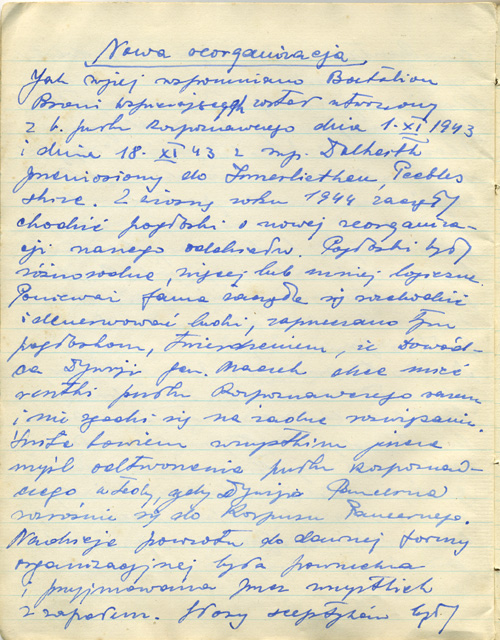 Nowa reorganizacja
Jak wyżej wspomniano Batalion
Broni Wspierających został utworzony
z b. pułku Rozpoznawczego dnia 1.XI 1943
i dnia 18.XI 43 z mp. Dalkeith
przeniesiony do Innerleithen, Peebles
shire. Z wiosną roku 1944 zaczęły
chodzić pogłoski o nowej reorganiza-
cji naszego oddziału. Pogłoski były
różnorodne, więcej lub mniej logiczne.
Ponieważ fama zaczęła się rozchodzić
i denerwować ludzi, zaprzeczano tym
pogłoskom, twierdzeniem, że Dowód-
ca Dywizji gen. Maczek chce mieć
resztki pułku Rozpoznawczego razem
i nie zgodzi się na żadne rozwiązanie.
bowiem wszystkim jeszcze
myśl odtworzenia pułku Rozpoznaw-
czego wtedy, gdy Dywizja Pancerna
rozrośnie się do Korpusu Pancernego.
Nadzieja powrotu do dawnej formy
organizacyjnej była powszechna
i przyjmowana przez wszystkich
z zapałem. Głosy sceptyków były